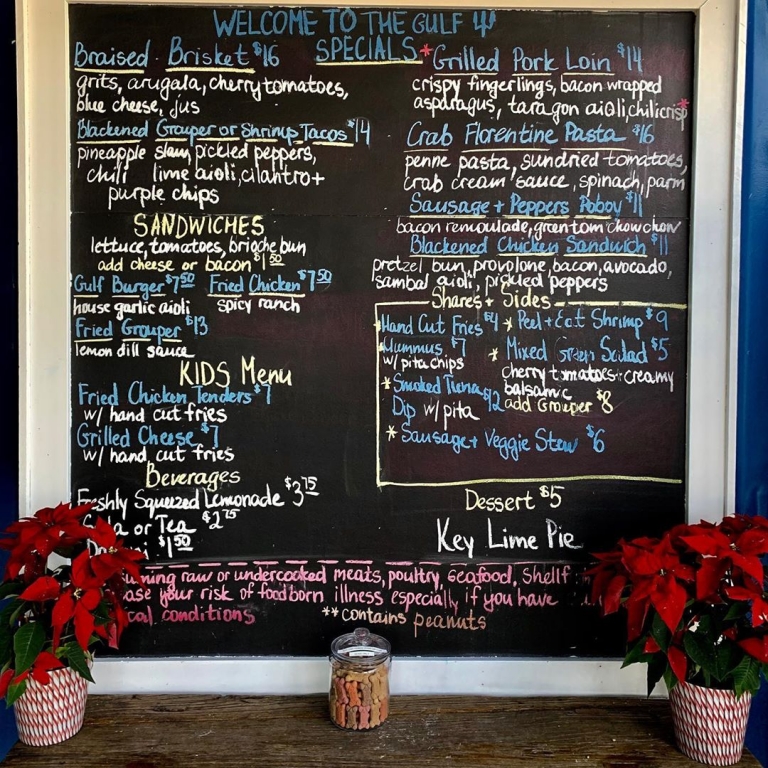 WELCOME TO THE GULF
SPECIALS
Braised Brisket $16
grits, arugala, cherry tomatoes,
blue cheese, jus
Blackened Grouper or Shrimp Tacos $14
pineapple slaw, pickled peppers,
chili lime aioli, cilantro +
purple chips
*Grilled Pork Loin $14
crispy fingerlings, bacon wrapped
asparagus, taragon aioli, chili crisp*
Crab Florentine Pasta $16
penne pasta, sundried tomatoes,
crab cream sauce, spinach, parm
Sausage + Peppers Poboy $11
bacon remoulade, green tom chow chow
Blackened Chicken Sandwich $11
pretzel bun, provolone, bacon, avocado,
sambal aioli, pickled peppers
SANDWICHES
lettuce, tomatoes, brioche bun
add cheese or bacon $1.50
Gulf Burger $7.50
house garlic aioli
Fried Chicken $7.50
spicy ranch
Fried Grouper $13
lemon dill sauce
KIDS Menu
Fried Chicken Tenders $7
w/ hand cut fries
Grilled Cheese $7
w/ hand cut fries
Beverages
Freshly Squeezed Lemonade $3.75
or Tea $2.75
$1.50
Shares + Sides
*Hand Cut Fries $4
*Hummus $7
w/ pita chips
*Smoked Tuna $12
Dip w/ pita
*Peel + Eat Shrimp $9
*Mixed Green Salad $5
cherry tomatoes + creamy
balsamic
add Grouper $8
*Sausage + Veggie Stew $6
Dessert $5
Key Lime Pie
raw or undercooked meats, poultry, seafood,
your risk of foodborn illness especially if you have
conditions
**contains peanuts